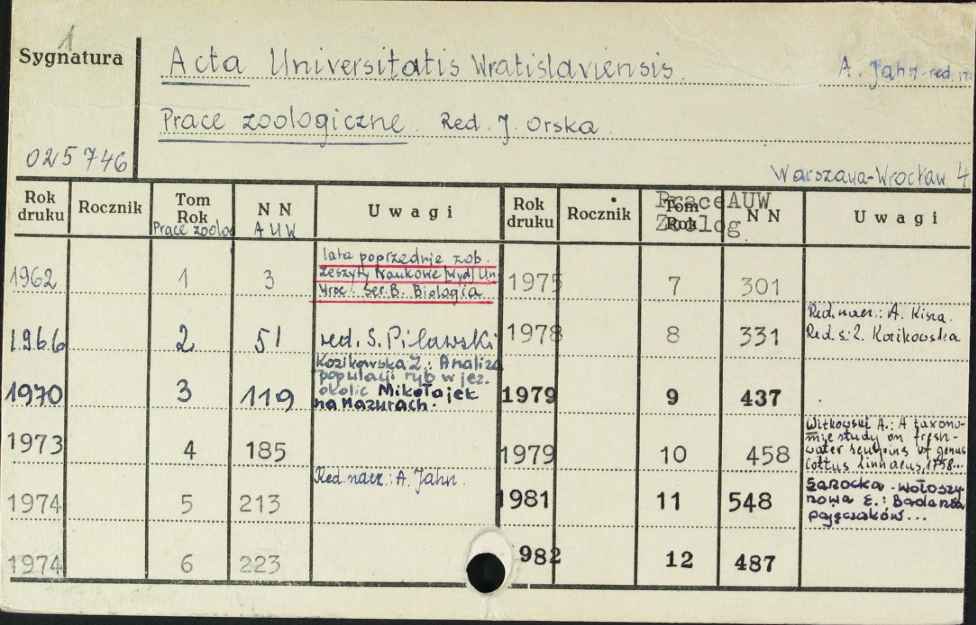 1
Sygnatura
Acta Universitatis Wratislaviensis
A. Jahn - red.
Prace zoologiczne. Red. J. Orska
025746
Warszawa-Wrocław
Rok druku Rocznik Tom Rok Prace zoolog N N AUW Uwagi Rok druku Rocznik Tom Rok Prace Zoolog. N N AUW Uwagi
1962 1 3
lata poprzednie zob.
Zeszyty Naukowe Wyd. Un
Wroc. Ser. B. Biologia
1975 7 301
1966 2 51 red. S. Pilawski
1978 8 331
Red. nacz.: A. Kisza
Red. s.: Z. Kozikowska
1970 3 119
Kozikowska Z.: Analiza
populacji ryb w jez.
okolic Mikołajek
na Mazurach.
1979 9 437
1973 4 185
1979 10 458
Witkowski A.: A taxono-
mic study on fresh-
water sculpins of genus
Cottus Linnaeus, 1758...
1974 5 213 Red. nacz.: A. Jahn.
1981 11 548
Sarocka - Wołoszy
nowa E.: Badania
pajęczaków...
1974 6 223
982 12 487